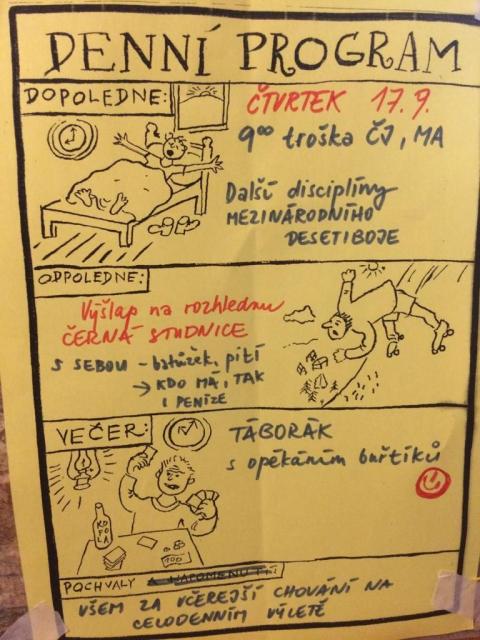 DENNÍ PROGRAM
DOPOLEDNE:
ČTVRTEK 17.9.
9⁰⁰ troška ČJ, MA
Další disciplíny
MEZINÁRODNÍHO
DESETIBOJE
ODPOLEDNE:
Výšlap na rozhlednu
ČERNÁ STUDNICE
S SEBOU - batůžek, pití
→ KDO MÁ, TAK
I PENÍZE
VEČER:
TÁBORÁK
s opékáním buřtíků
KOFOLA
100
POCHVALY
VŠEM ZA VČEREJŠÍ CHOVÁNÍ NA
CELODENNÍM VÝLETĚ